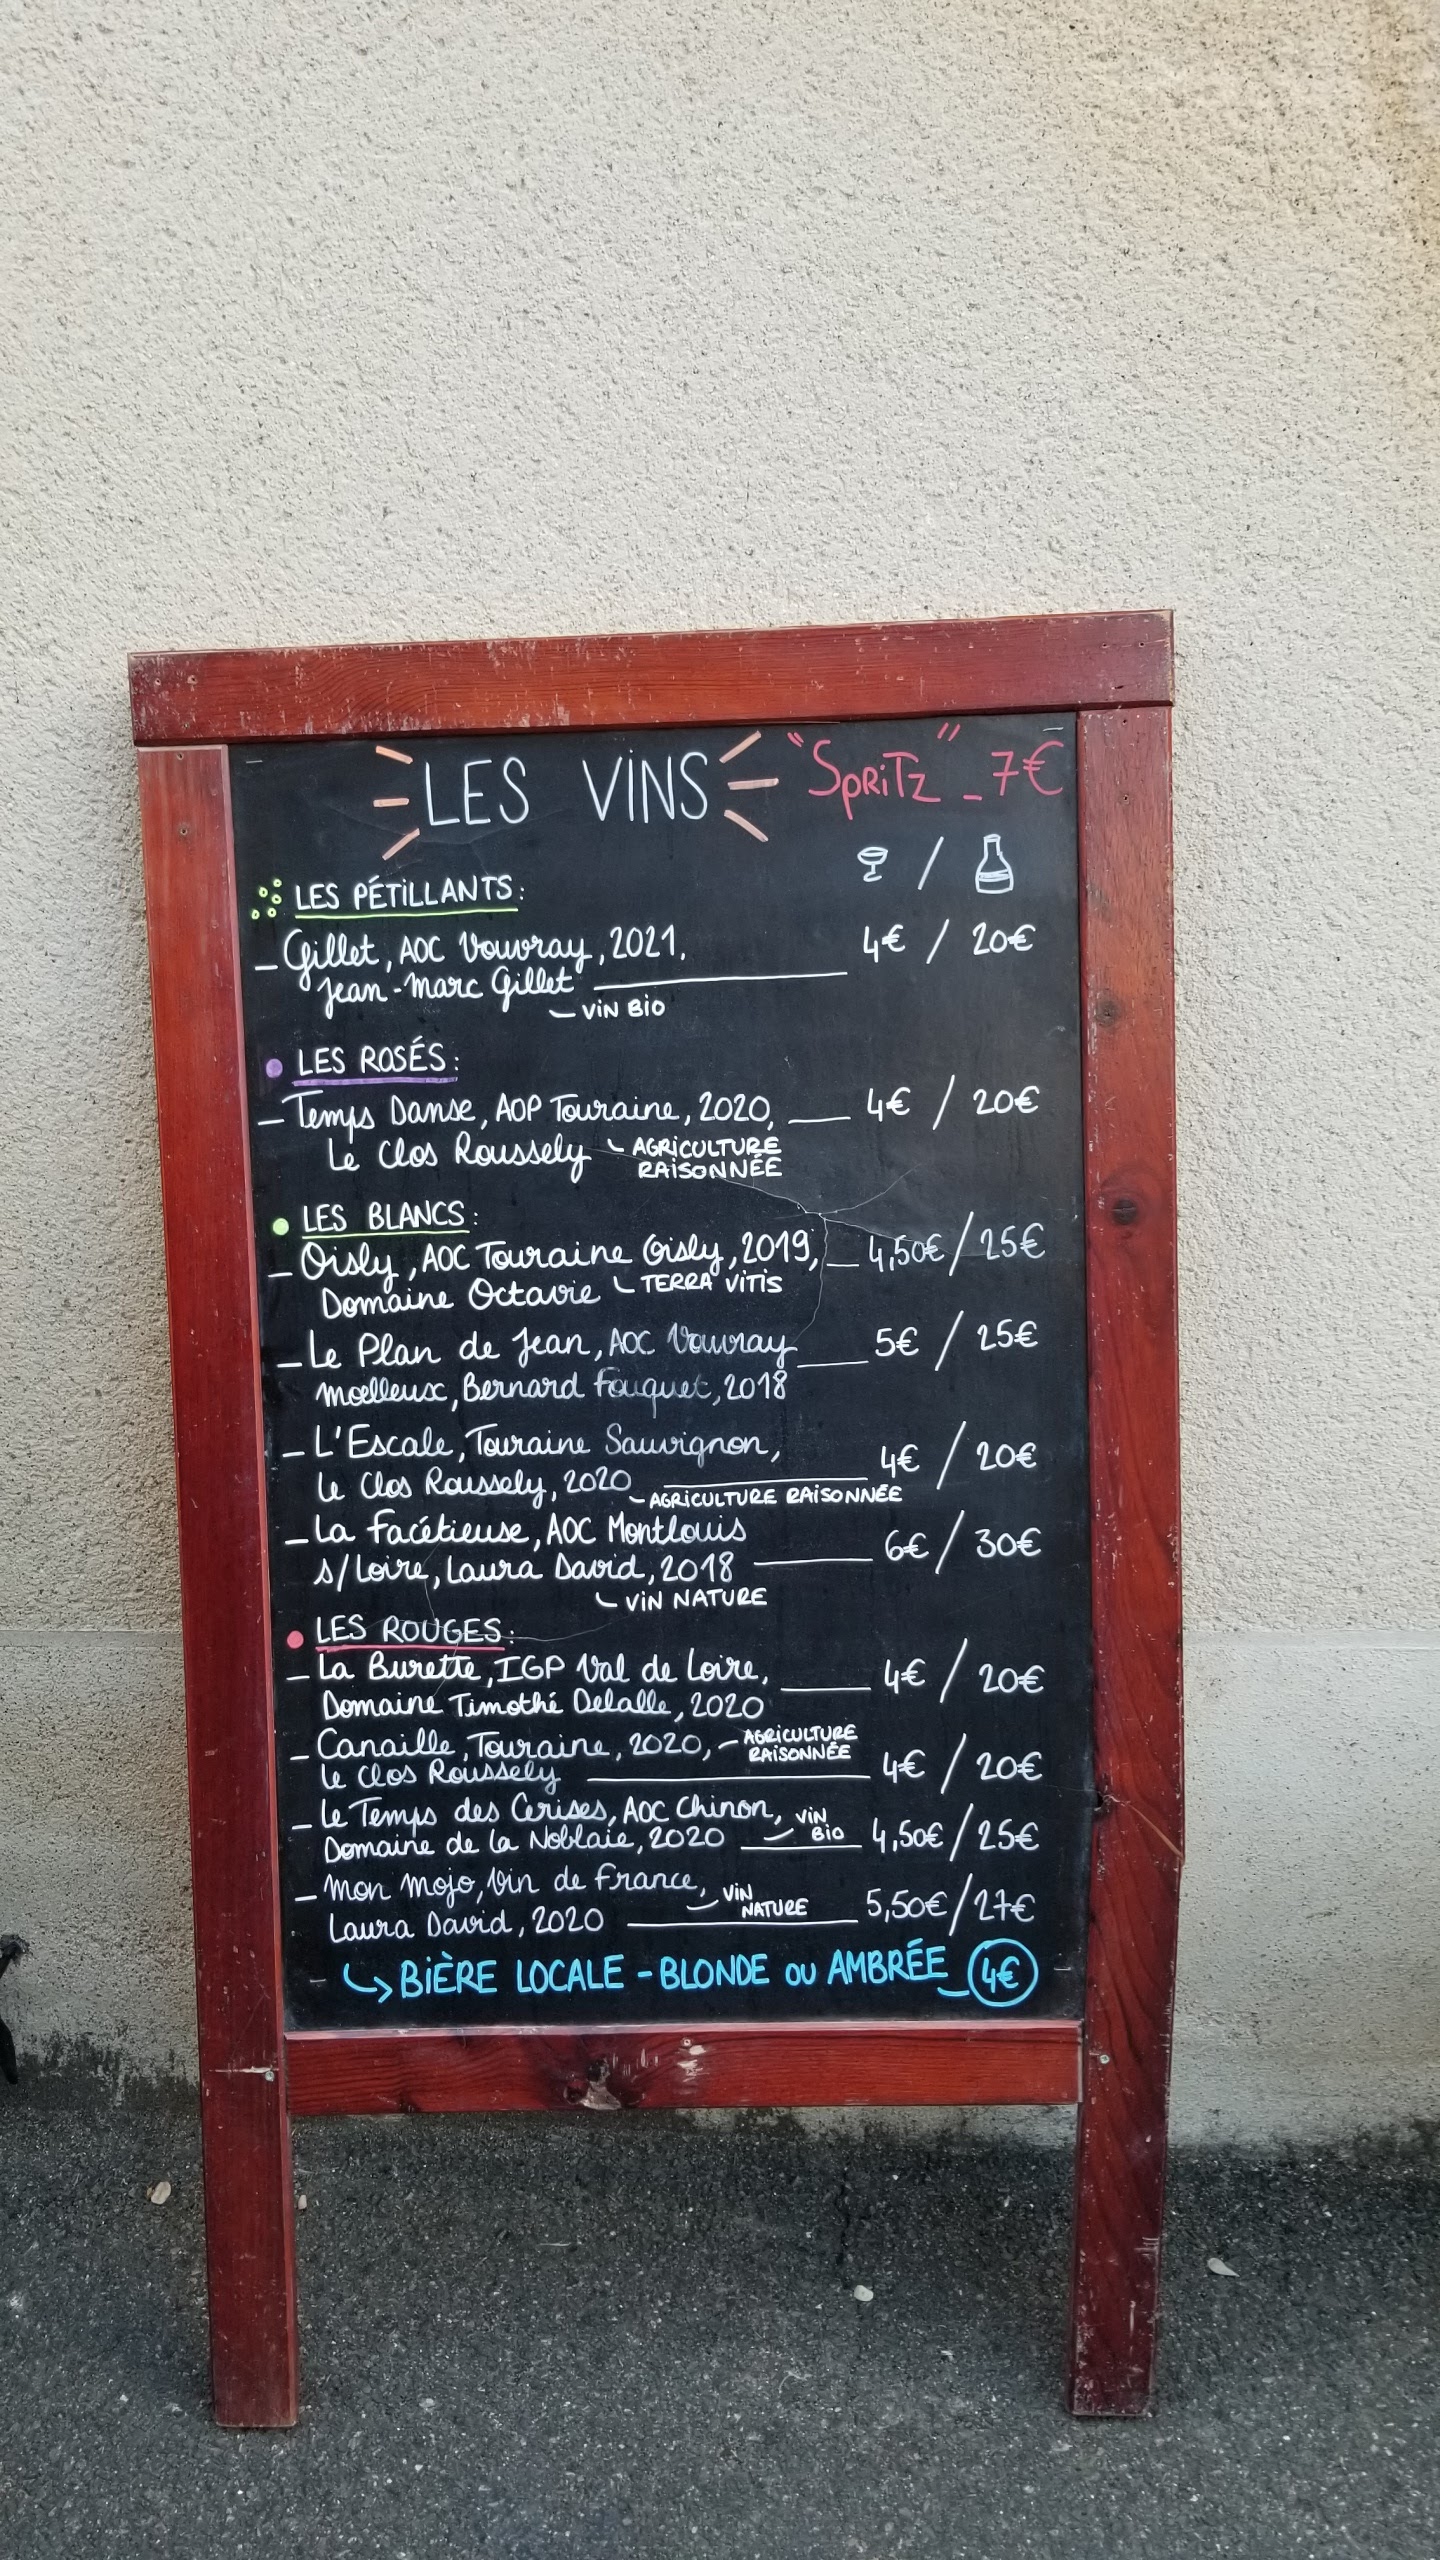 LES VINS "SPRITZ" - 7€
LES PÉTILLANTS:
- Gillet, AOC Vouvray, 2021, 4€ / 20€
Jean-Marc Gillet
VIN BIO
LES ROSÉS:
- Temps Danse, AOP Touraine, 2020, 4€ / 20€
Le Clos Roussely AGRICULTURE
RAISONNÉE
LES BLANCS:
- Oisly, AOC Touraine Oisly, 2019, 4,50€ / 25€
Domaine Octavie TERRA VITIS
- Le Plan de Jean, AOC Vouvray 5€ / 25€
moelleux, Bernard Fouquet, 2018
- L'Escale, Touraine Sauvignon, 4€ / 20€
Le Clos Roussely, 2020
AGRICULTURE RAISONNÉE
- La Facétieuse, AOC Montlouis 6€ / 30€
s/Loire, Laura David, 2018
VIN NATURE
LES ROUGES:
- La Burette, IGP Val de Loire, 4€ / 20€
Domaine Timothé Delalle, 2020
- Canaille, Touraine, 2020, AGRICULTURE
RAISONNÉE
Le Clos Roussely 4€ / 20€
- Le Temps des Cerises, AOC Chinon, VIN
BIO
Domaine de la Noblaie, 2020 4,50€ / 25€
- Mon Mojo, Vin de France, VIN
NATURE
Laura David, 2020 5,50€ / 27€
BIÈRE LOCALE - BLONDE OU AMBRÉE 4€